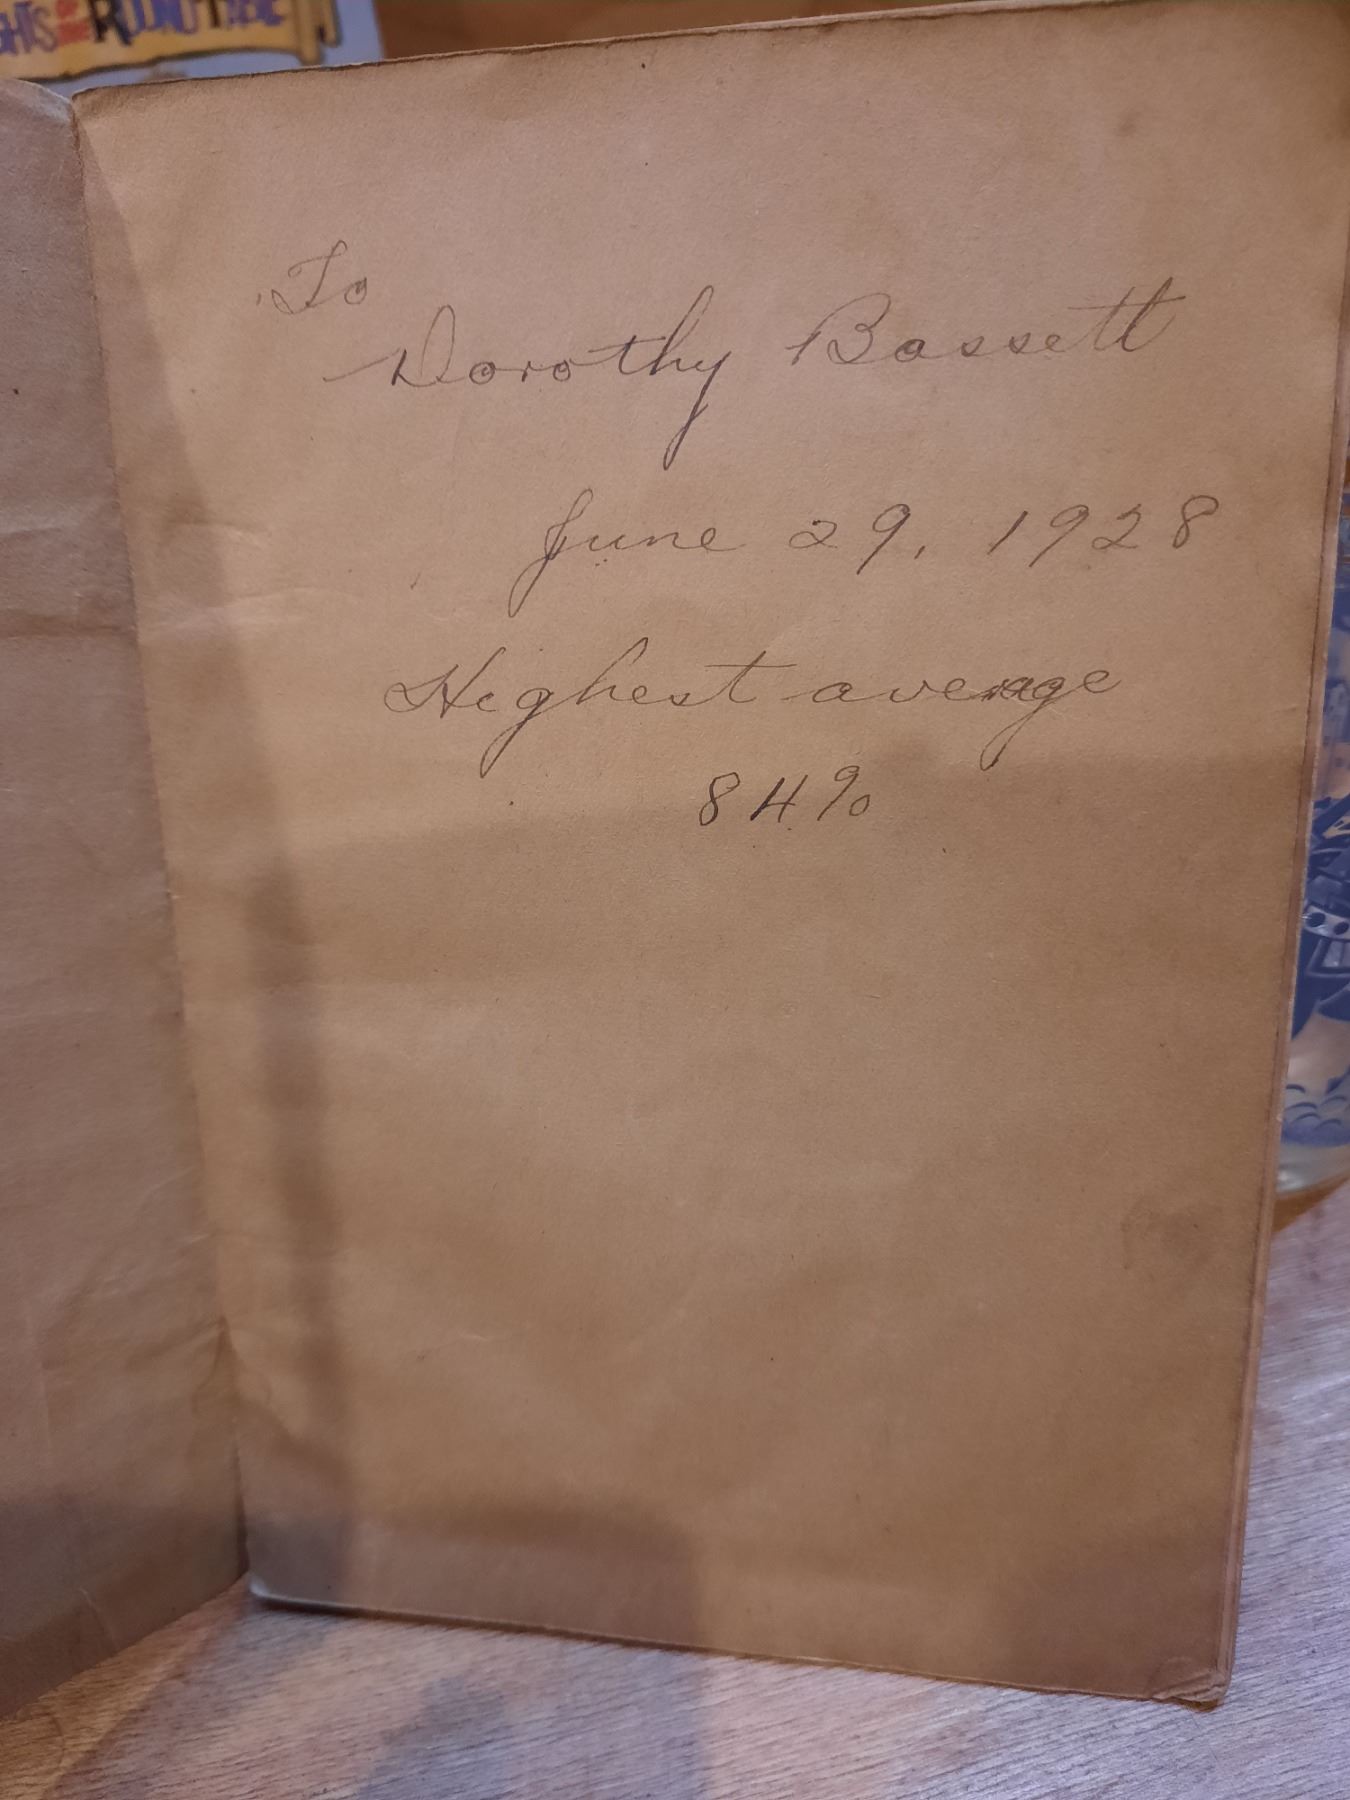 GHTS OF THE ROUND TABLE
To
Dorothy Bassett
June 29, 1928
Highest average
84%